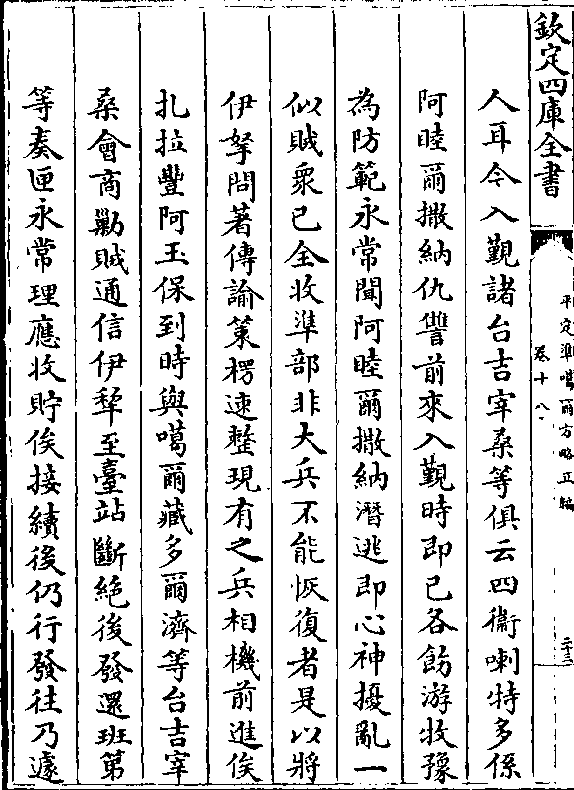 欽定四庫全書
平定準噶爾方略正編
卷十八
二十三
人耳今入覲諸台吉宰桑等俱云四衛喇特多係
阿睦爾撒納仇讐前來入覲時即已各飭游牧豫
為防範永常聞阿睦爾撒納潛逃即心神擾亂一
似賊衆已全收準部非大兵不能恢復者是以將
伊拏問著傳諭策楞速整現有之兵相機前進俟
扎拉豐阿玉保到時與噶爾藏多爾濟等台吉宰
桑會商勦賊通信伊犂至臺站斷絕後發還班第
等奏匣永常理應收貯俟接續後仍行發往乃遽